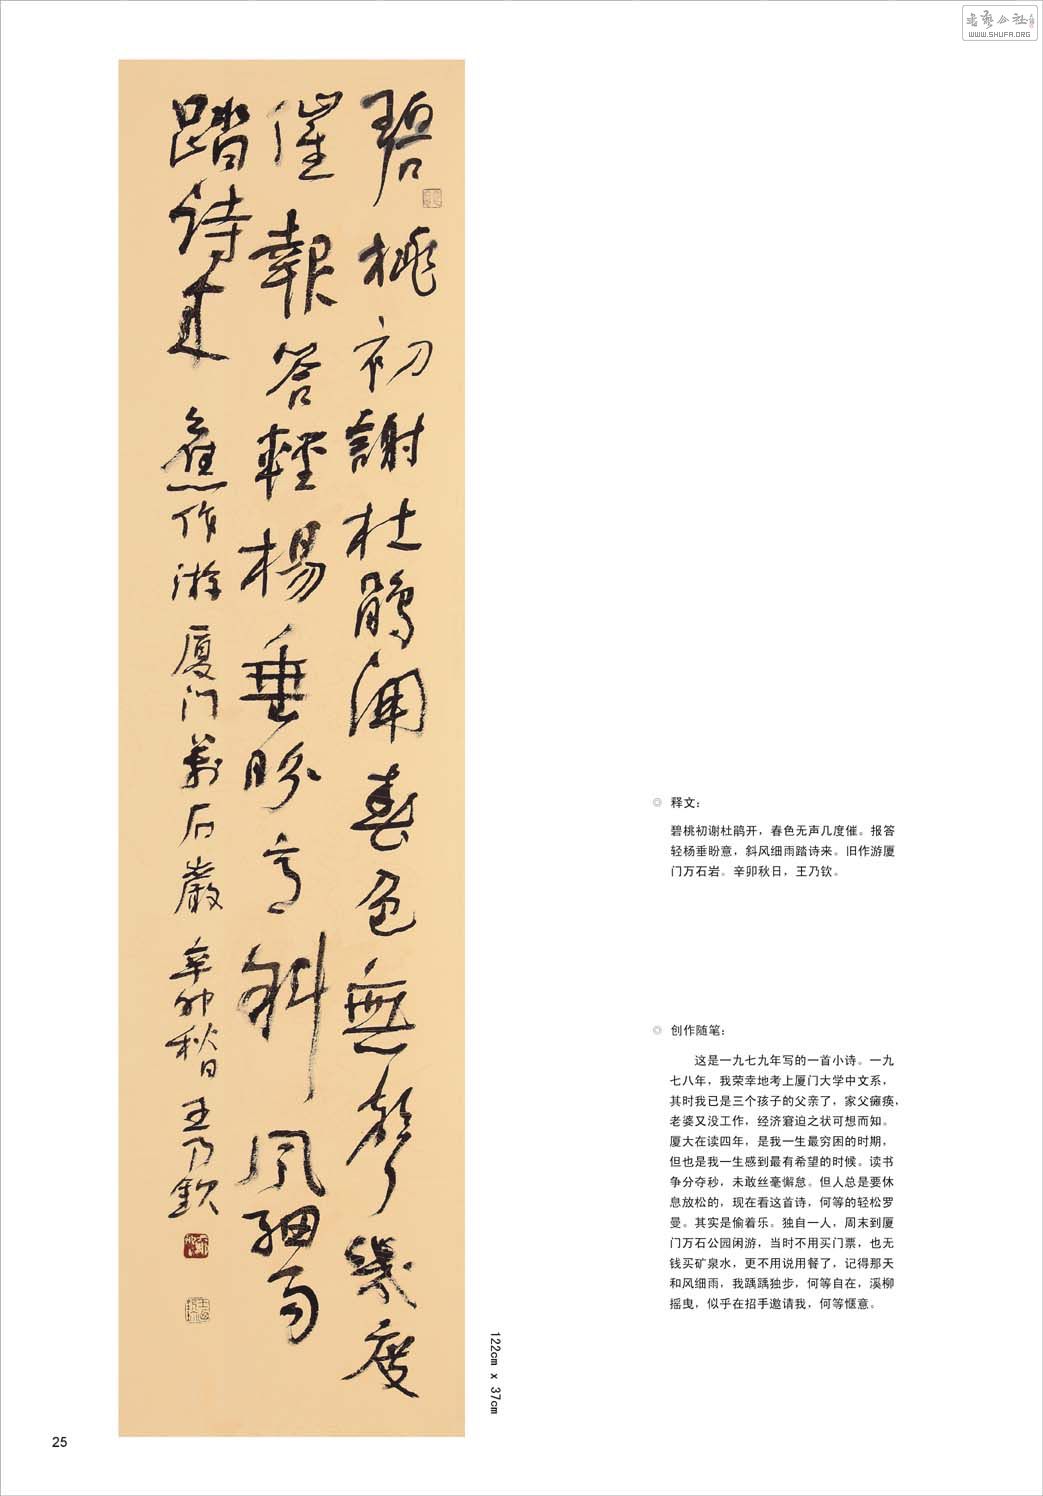 書藝公社
WWW.SHUFA.ORG
碧桃初謝杜鵑開春色無聲幾度
催報答輕楊垂盼意斜風細雨
踏诗来 舊作游厦门萬石巖 辛卯秋日 王乃欽
122cm x 37cm
◎ 释文:
碧桃初谢杜鹃开，春色无声几度催。报答
轻杨垂盼意，斜风细雨踏诗来。旧作游厦
门万石岩。辛卯秋日，王乃钦。
◎ 创作随笔:
这是一九七九年写的一首小诗。一九
七八年，我荣幸地考上厦门大学中文系，
其时我已是三个孩子的父亲了，家父瘫痪，
老婆又没工作，经济窘迫之状可想而知。
厦大在读四年，是我一生最穷困的时期，
但也是我一生感到最有希望的时候。读书
争分夺秒，未敢丝毫懈怠。但人总是要休
息放松的，现在看这首诗，何等的轻松罗
曼。其实是偷着乐。独自一人，周末到厦
门万石公园闲游，当时不用买门票，也无
钱买矿泉水，更不用说用餐了，记得那天
和风细雨，我踽踽独步，何等自在，溪柳
摇曳，似乎在招手邀请我，何等惬意。
25